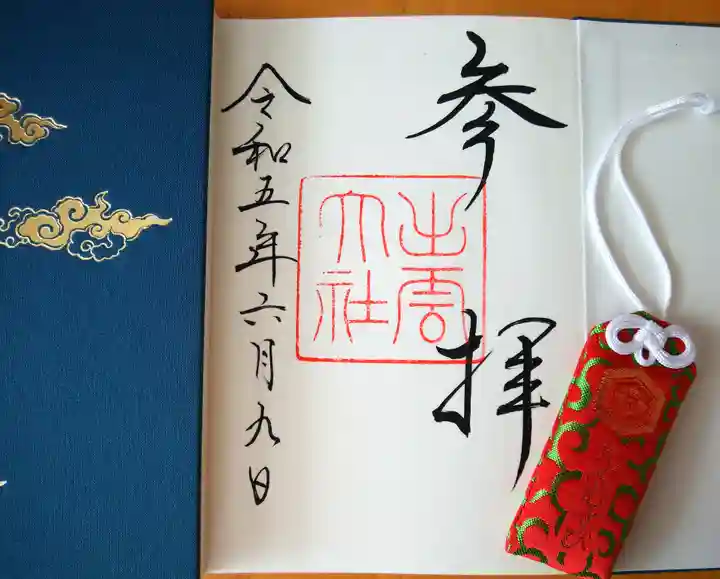 参拝
出雲大社
令和五年六月九日